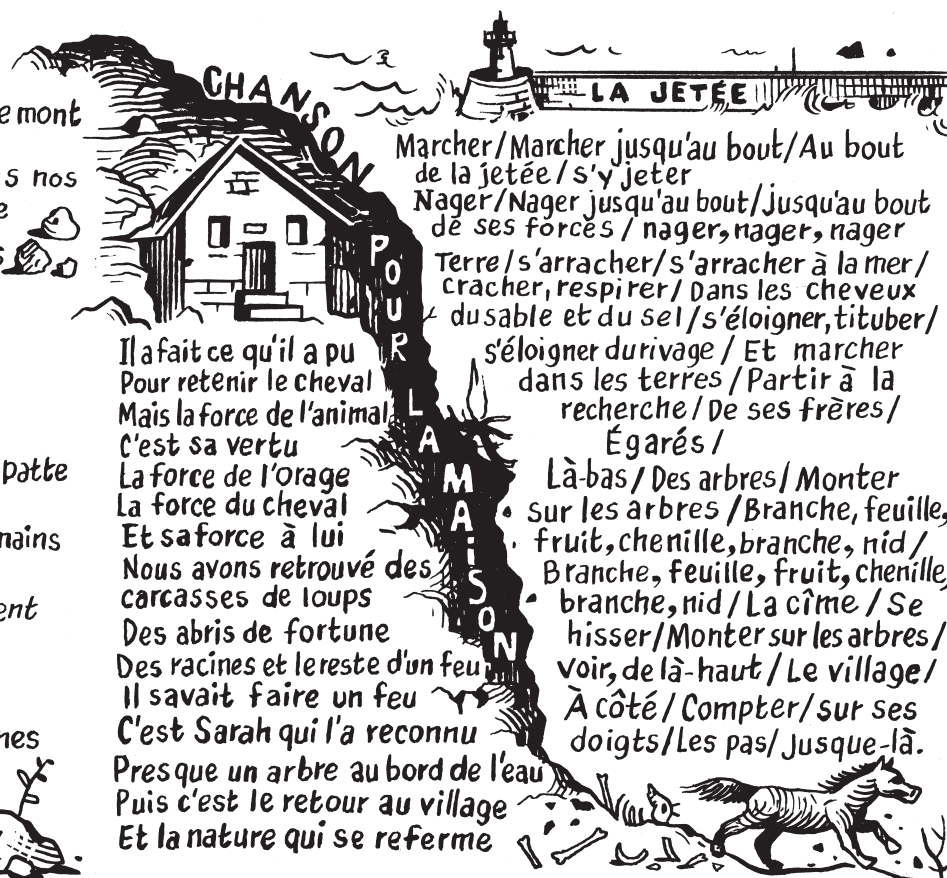 e mont
s nos
e
s
patte
mains
ent
nes
CHANSON POUR LA MAISON
Il a fait ce qu'il a pu
Pour retenir le cheval
Mais la force de l'animal
C'est sa vertu
La force de l'orage
La force du cheval
Et sa force à lui
Nous avons retrouvé des
carcasses de loups
Des abris de fortune
Des racines et le reste d'un feu
Il savait faire un feu
C'est Sarah qui l'a reconnu
Presque un arbre au bord de l'eau
Puis c'est le retour au village
Et la nature qui se referme
LA JETÉE
Marcher/Marcher jusqu'au bout/Au bout
de la jetée/s'y jeter
Nager/Nager jusqu'au bout/Jusqu'au bout
de ses forces/nager, nager, nager
Terre/s'arracher/s'arracher à la mer/
Cracher, respirer/Dans les cheveux
du sable et du sel/s'éloigner, tituber/
s'éloigner du rivage/Et marcher
dans les terres/Partir à la
recherche/De ses frères/
Égarés/
Là-bas/Des arbres/Monter
sur les arbres/Branche, feuille,
fruit, chenille, branche, nid/
Branche, feuille, fruit, chenille,
branche, nid/La cîme/Se
hisser/Monter sur les arbres/
Voir, de là-haut/Le village/
À côté/Compter/sur ses
doigts/Les pas/Jusque-là.